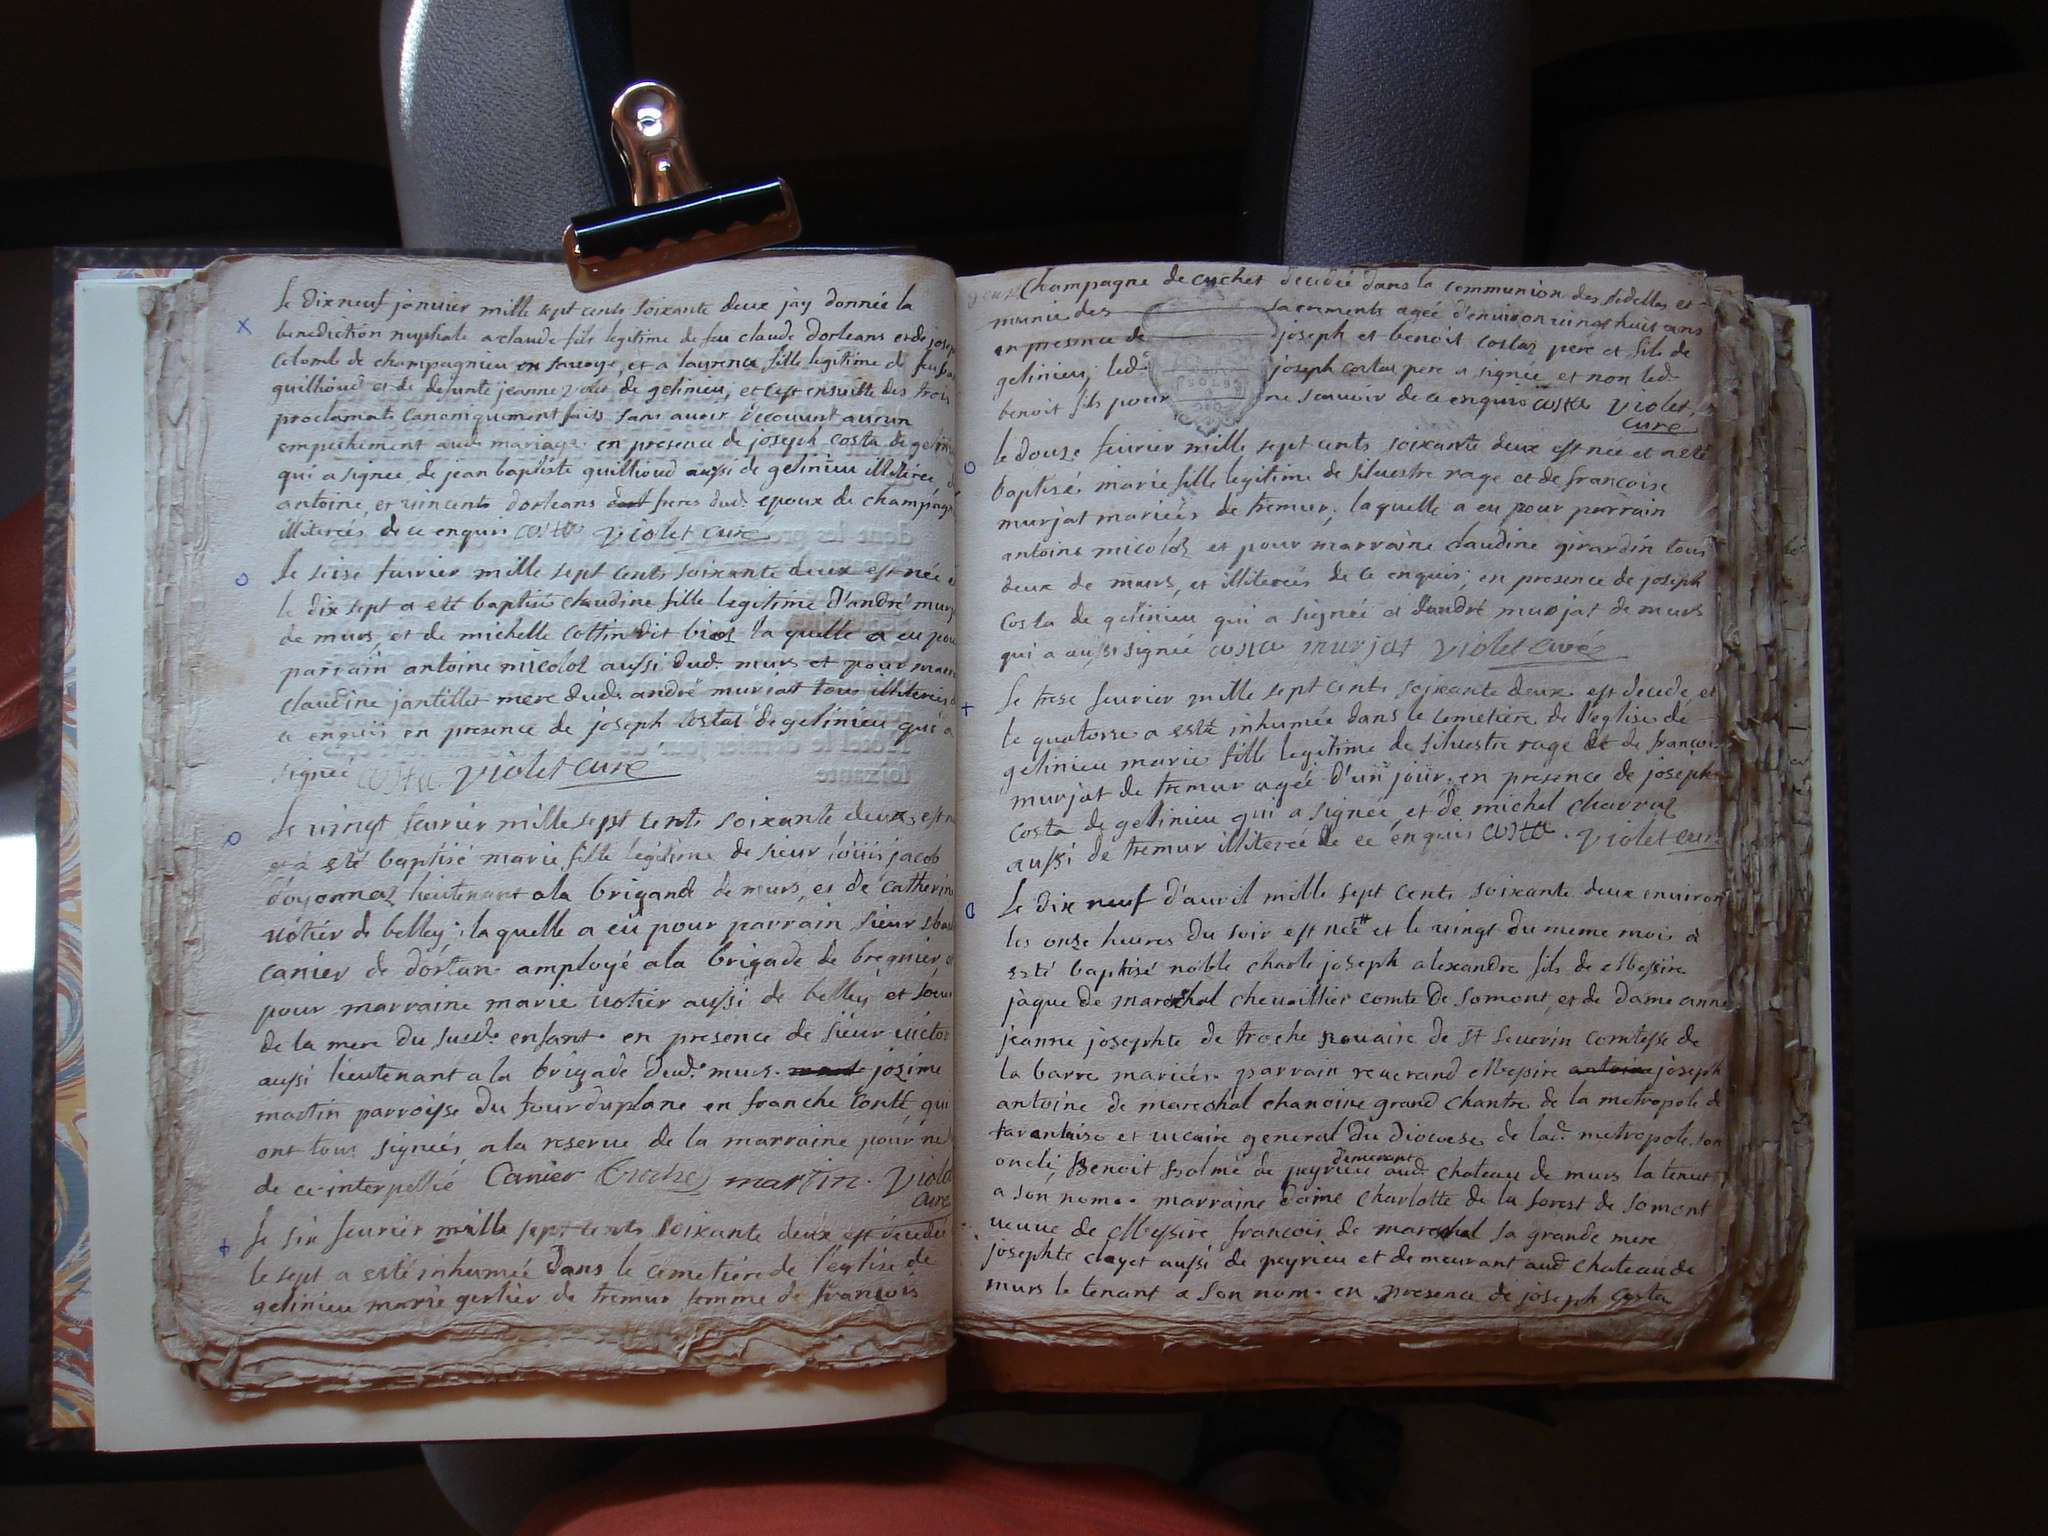 Le dix neuf janvier mille sept cents soixante deux jay donnée la
benediction nuptiale a claude fils legitime de feu claude dorleans et de
colomb de champagnieu en savoye, et a laurence fille legitime de feu
guillioud et de defunte jeanne de gelinieu, et cest ensuitte des trois
proclamats canoniquement faits sans avoir decouvert aucun
empechement aud. mariage. en presence de joseph costa de
qui a signée, de jean baptiste guillioud aussi de gelinieu illiterée,
antoine, et vincents dorleans freres dud. epoux de
illiterés de ce enquis costa violet curé
Le seise fuvrier mille sept cents soixante deux est née
le dix sept a esté baptisé claudine fille legitime d'andré
de murs, et de michelle cottin dit la quelle a eu
parrain antoine micoloz aussi dud. murs et pour
claudine jantillet mere dud. andré murjat tous
ce enquis en presence de joseph costaz de gelinieu qui a
signée costa. violet curé
Le vingt feuvrier mille sept cents soixante deux, est
et a esté baptisé marie fille legitime de sieur louiis jacob
d'oyonnaz lieutenant a la brigand de murs, et de catherine
votier de belley; la quelle a eu pour parrain sieur
canier de dortan amployé a la brigade de bregnier
pour marraine marie votier aussi de belley, et soeur
de la mere du susd. enfant. en presence de sieur victor
aussi lieutenant a la brigade dud. murs. josime
martin parroisse du four du plane en franche conté, qui
ont tous signées, a la reserve de la marraine pour ne
de ce interpellé Canier martin. Violet
curé
Le six feuvrier mille sept cents soixante deux est decedée
le sept a esté inhumée dans le cemetiere de l'eglise de
gelinieu marie gerlier de tremur femme de françois
Champagne de cuchet decedée dans la communion des fidelles et
munie des sacrements agée d'environ vingt huis ans
en presence de joseph et benoit costaz pere et fils de
gelinieu; led. joseph costaz pere a signée et non led.
benoit fils pour ne scavoir de ce enquis costa Violet,
curé
le douse fuivrier mille sept cents soixante deux est née et a esté
baptisé marie fille legitime de silvestre rage et de francoise
murjat mariées de tremur; laquelle a eu pour parrain
antoine micoloz et pour marraine claudine girardin tous
deux de murs, et illiterés de ce enquis, en presence de joseph
costa de gelinieu qui a signée et d'andré murjat de murs
qui a aussi signée costa murjat violet curé
Le trese feuvrier mille sept cents soixante deux est decedé et
le quatorse a esté inhumée dans le cemetiere de l'eglise de
gelinieu marie fille legitime de silvestre rage et de françoise
murjat de tremur agée d'un jour. en presence de joseph
costa de gelinieu qui a signée, et de michel charraz
aussi de tremur illiterée de ce enquis costa. violet curé
Le dix neuf d'avril mille sept cents soixante deux environ
les onse heures du soir est née et le vingt du meme mois a
esté baptisé noble charle joseph alexandre fils de Messire
jaque de mareschal chevaillier comte de somont, et de dame anne
jeanne josephte de troche de st severin comtesse de
la barre mariés. parrain reverand Messire antoine joseph
antoine de mareschal chanoine grand chantre de la metropole de
tarantaise et vicaire general du diocese de lad. metropole son
oncle, Benoit balmé de peyrieu demeurant aud. chateau de murs la tenut
a son nom. marraine dame charlotte de la forest de somont
veuve de Messire françois de mareschal sa grande mere
josephte clayet aussi de peyrieu et demeurant aud. chateau de
murs le tenant a son nom. en presence de joseph costa